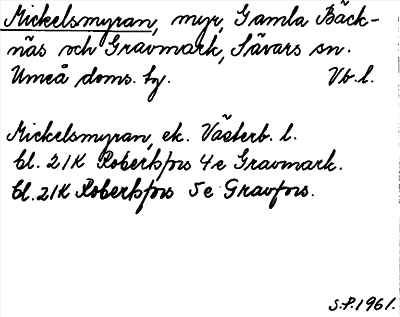 Mickelsmyran, myr, Gamla Bäck-
näs och Gravmark, Sävars sn.
Umeå doms. hg. Vb. l.
Mickelsmyran, ek. Västerb. l.
bl. 21K Robertsfors 4e Gravmark.
bl. 21K Robertsfors 5e Gravfors.
S.P. 1961.